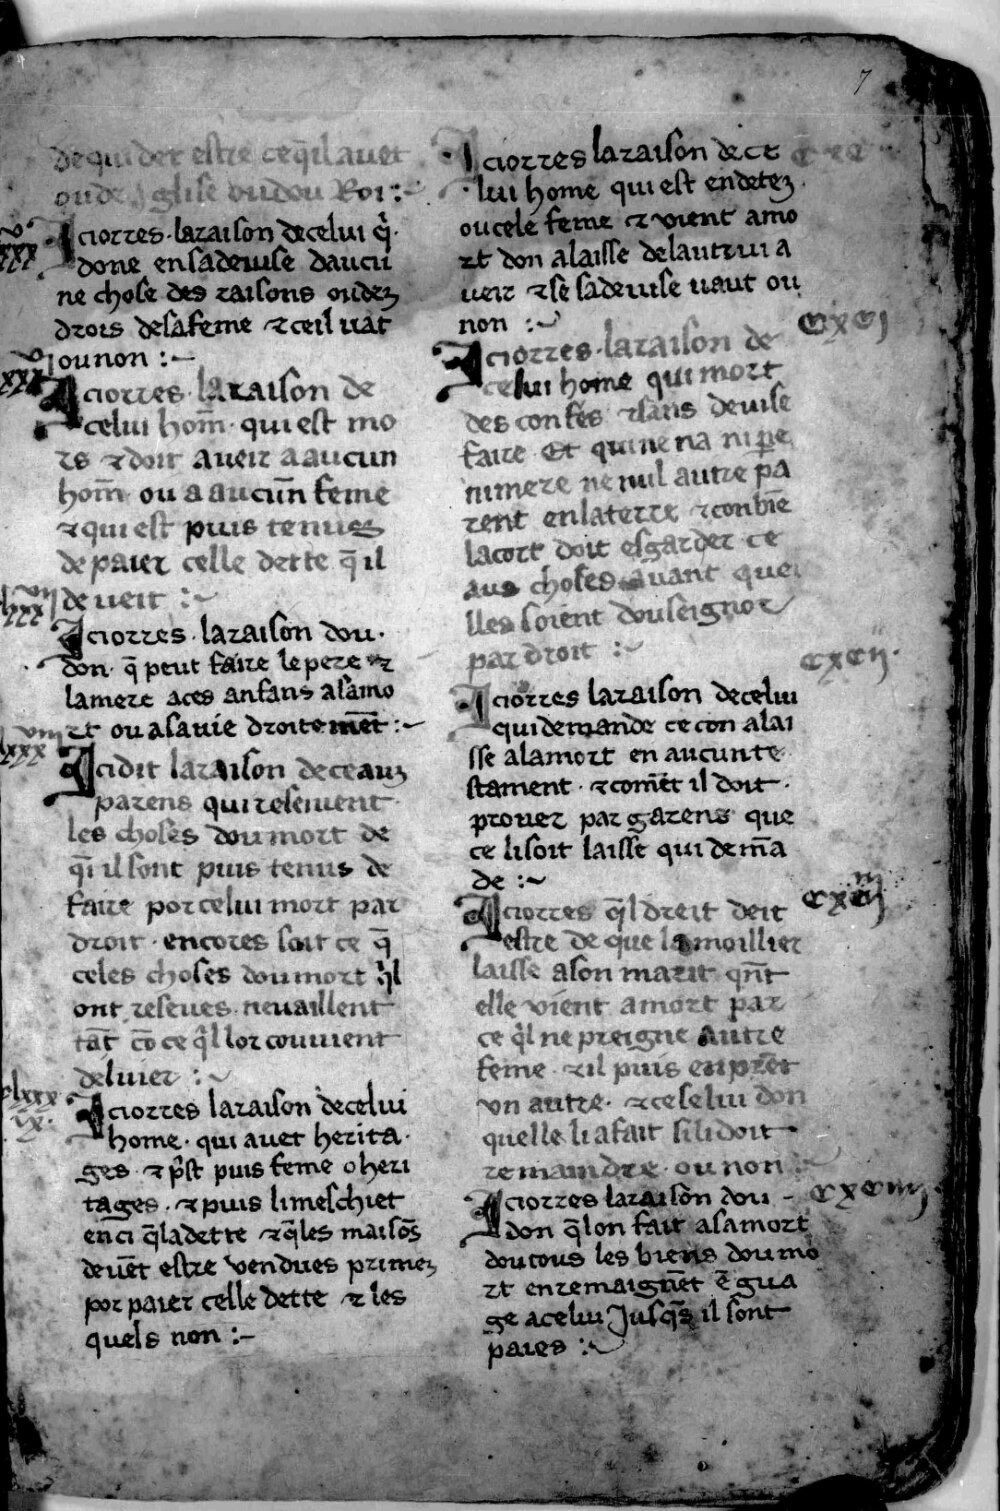 7
de qui det estre ce q̄il avet
ou de yglise ou dou Roi :~
Ici orres · la raison de celui q̇ ·
done en sa devise daucu
ne chose des raisons ou dez
drois de sa feme ⁊ ce il vat
ou non :~
Aci orres · la raison de
celui hom̄ · qui est mo
rs ⁊ doit aveir a aucun
hom̄ ou a aucun̄ feme
⁊ qui est puis tenues
de paier celle dette q̄ il
deveit :~
Ici orres · la raison dou ·
don · q̄ peut faire le pere ⁊
la mere a ces anfans a sa mo
rt ou a sa vie droitemēt :~
Icidit la raison de ceauz
parens qui reseivent
les choses dou mort de
q̄i il sont puis tenus de
faire por celui mort par
droit · encores soit ce q̄
celes choses dou mort q̇l
ont reseves ne vaillent
tāt cō ce q̇l lor covient
delivier :~
Aci orres la raison de celui
home · qui avet herita ·
ges · ⁊ p̄st puis feme o heri
tages · ⁊ puis li meschiet
enci q̄ la dette ⁊ q̄ les maisōs
devēt estre vendues primez
por paier celle dette ⁊ les
quels non :~
Ici orres la raison de ce
lui home qui est endetez ·
ou cele feme ⁊ vient a mo
rt don a laisse de lautrui a
veir ⁊ se sa devise vaut ou
non :~
cxcj
Aci orres · la raison de
celui home qui mort
des confēs ⁊ sans devise
faire Et qui ne na ni pe
ni mere ne nul autre pa
rent en la terre ⁊ con biē
la cort doit esgarder ce
aus choses avant que
lles soient dou seignor
par droit :~
cxcij ·
Ici orres la raison de celui
qui demande ce con a lai
sse a la mort en aucun te
stament · ⁊ comēt il doit ·
prover par garens que
ce li soit laisse qui demā
de :~
cxciij
Aci orres q̄l dreit deit
estre de que la moillier
laisse a son marit q̄nt
elle vient a mort par
ce q̇l ne preigne autre
feme · ⁊ il puis en prēt
un autre · ⁊ ce se lui don
quelle li a fait si li doit
remaindre · ou non :~
cxciiij
Aci orres la raison dou -
don q̄ lon fait a sa mort
dou tous les biens dou mo
rt en remaignēt ē gua
ge a celui jusq̄s il sont
paies :~